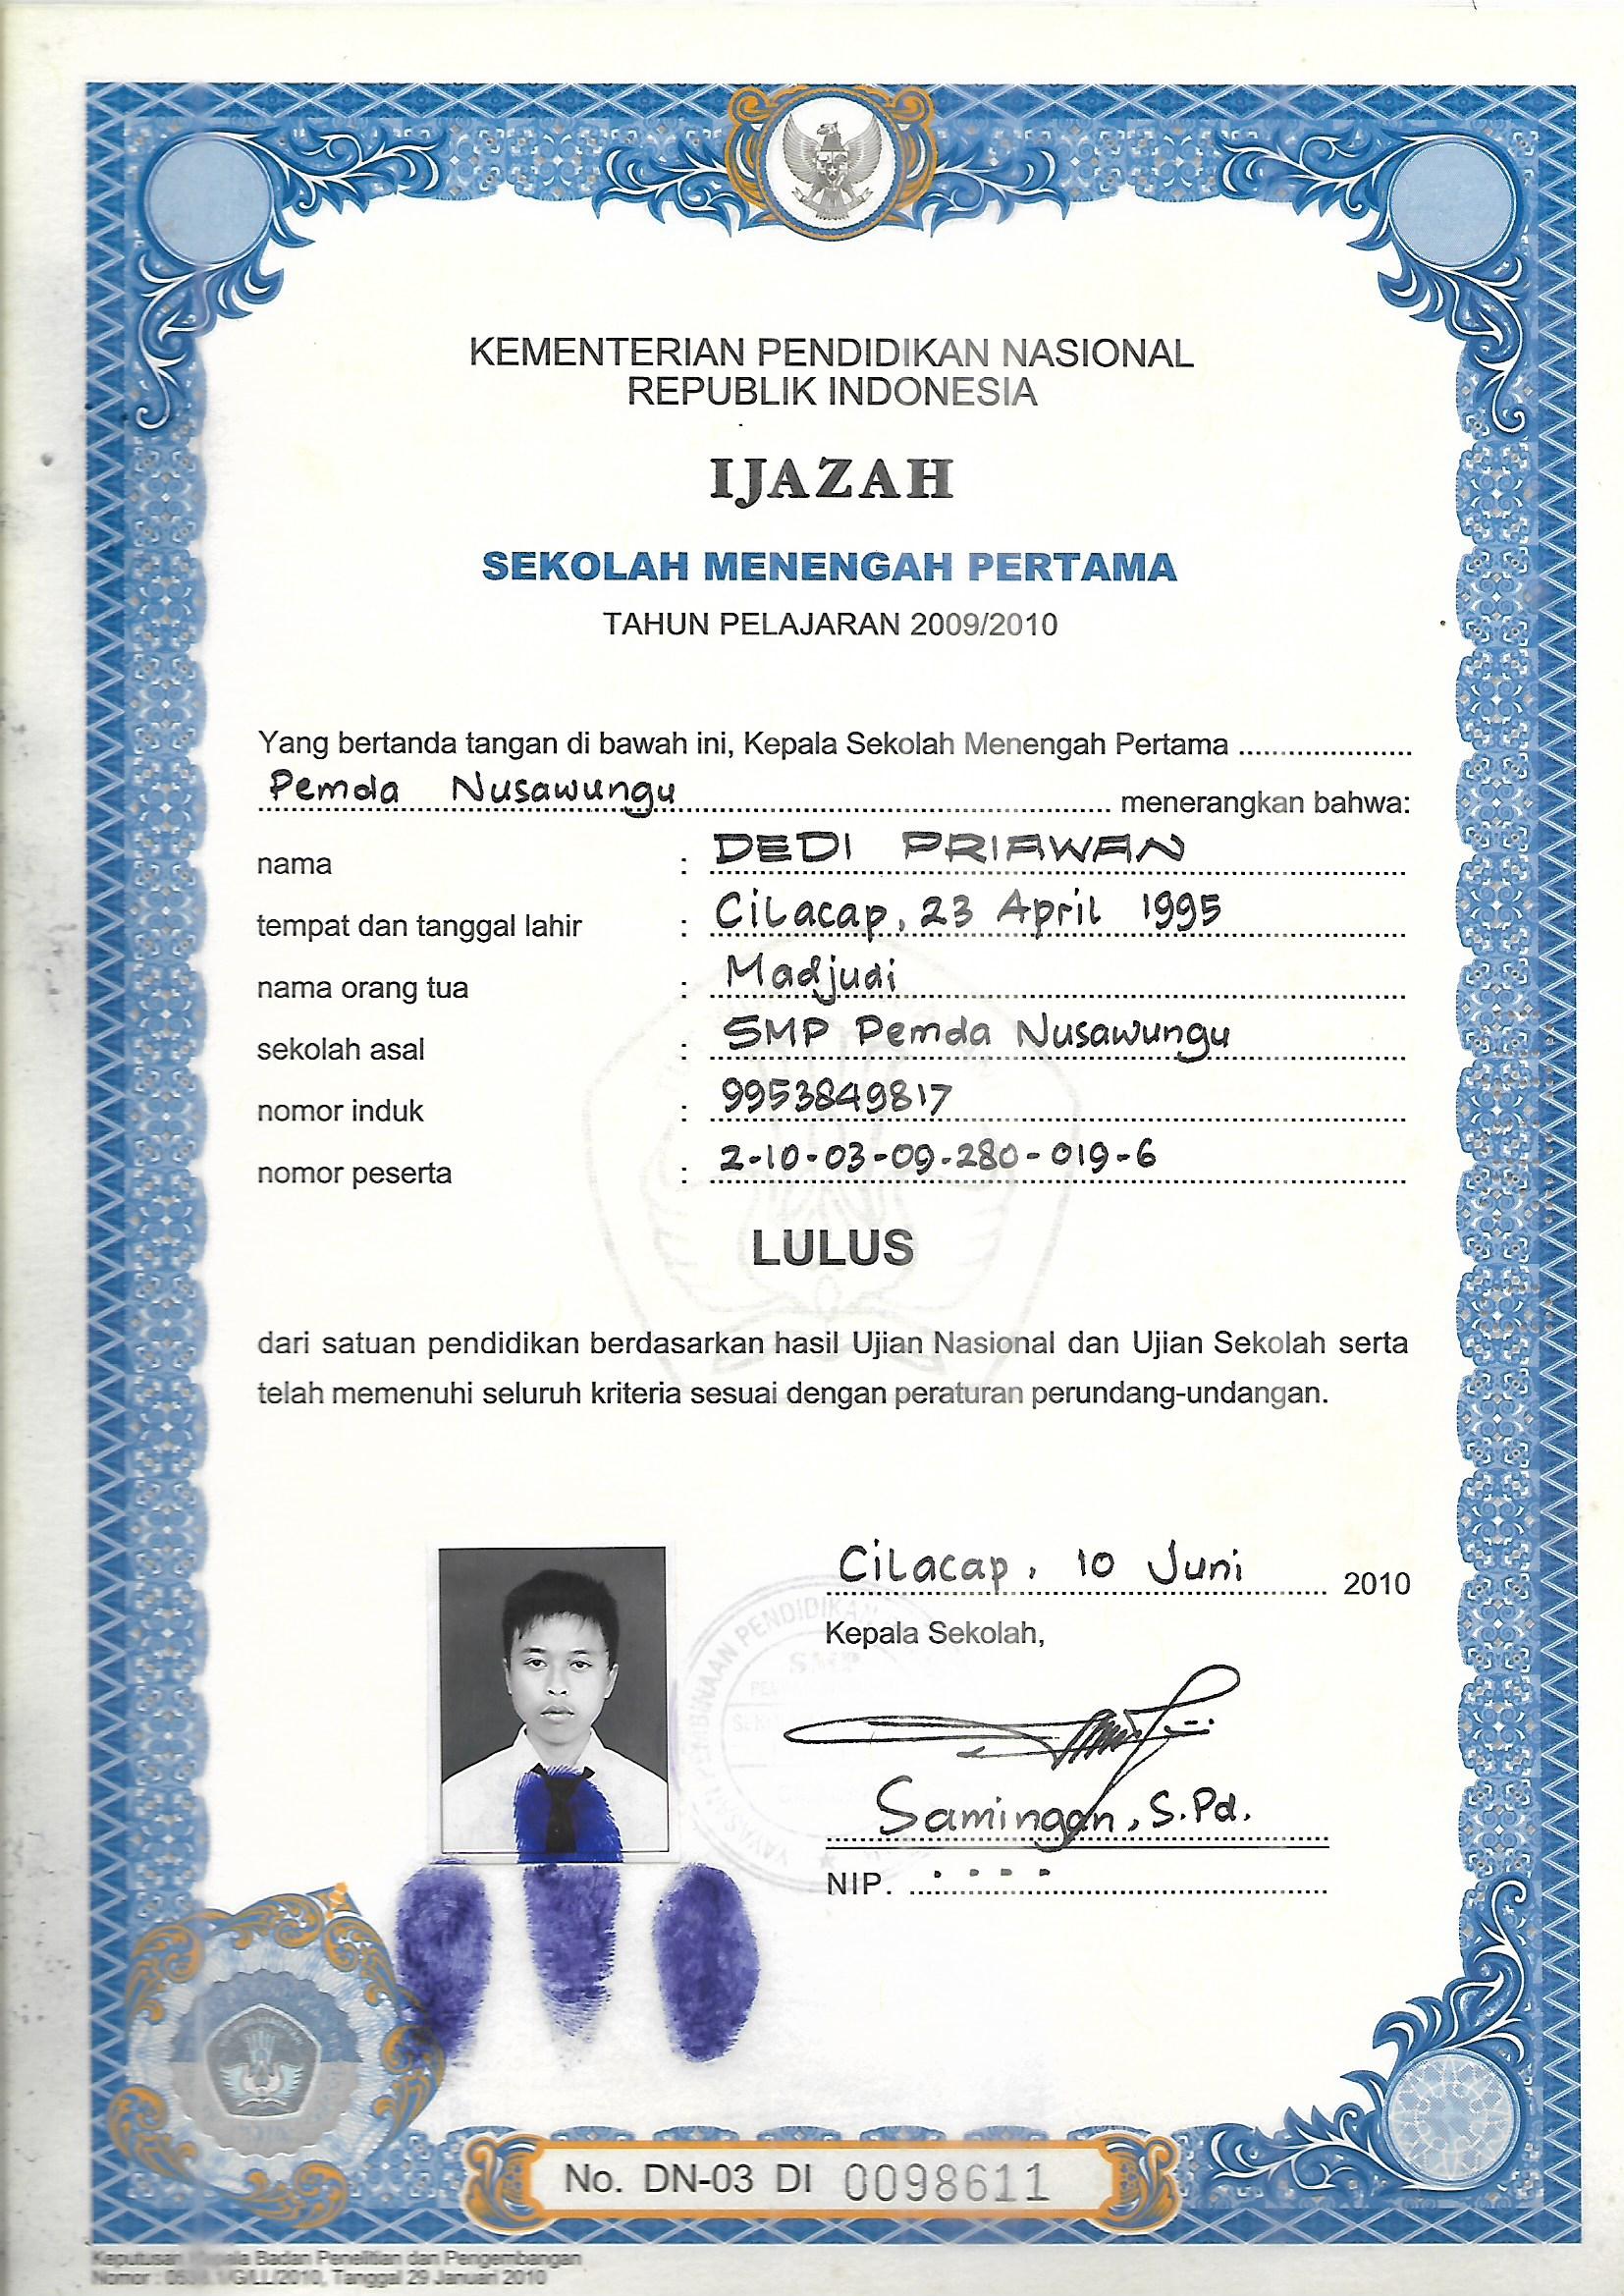 KEMENTERIAN PENDIDIKAN NASIONAL
REPUBLIK INDONESIA
IJAZAH
SEKOLAH MENENGAH PERTAMA
TAHUN PELAJARAN 2009/2010
Yang bertanda tangan di bawah ini, Kepala Sekolah Menengah Pertama ....................
Pemda Nusawungu menerangkan bahwa:
nama : DEDI PRIAWAN
tempat dan tanggal lahir : Cilacap, 23 April 1995
nama orang tua : Madjudi
sekolah asal : SMP Pemda Nusawungu
nomor induk : 9953849817
nomor peserta : 2-10-03-09-280-019-6
LULUS
dari satuan pendidikan berdasarkan hasil Ujian Nasional dan Ujian Sekolah serta
telah memenuhi seluruh kriteria sesuai dengan peraturan perundang-undangan.
Cilacap, 10 Juni 2010
Kepala Sekolah,
PEMBINAAN PENDIDIKAN
SMP
Samingan, S.Pd.
NIP. - - - -
No. DN-03 DI 0098611
Keputusan Kepala Badan Penelitian dan Pengembangan
Nomor : /G/LL/2010, Tanggal 29 Januari 2010